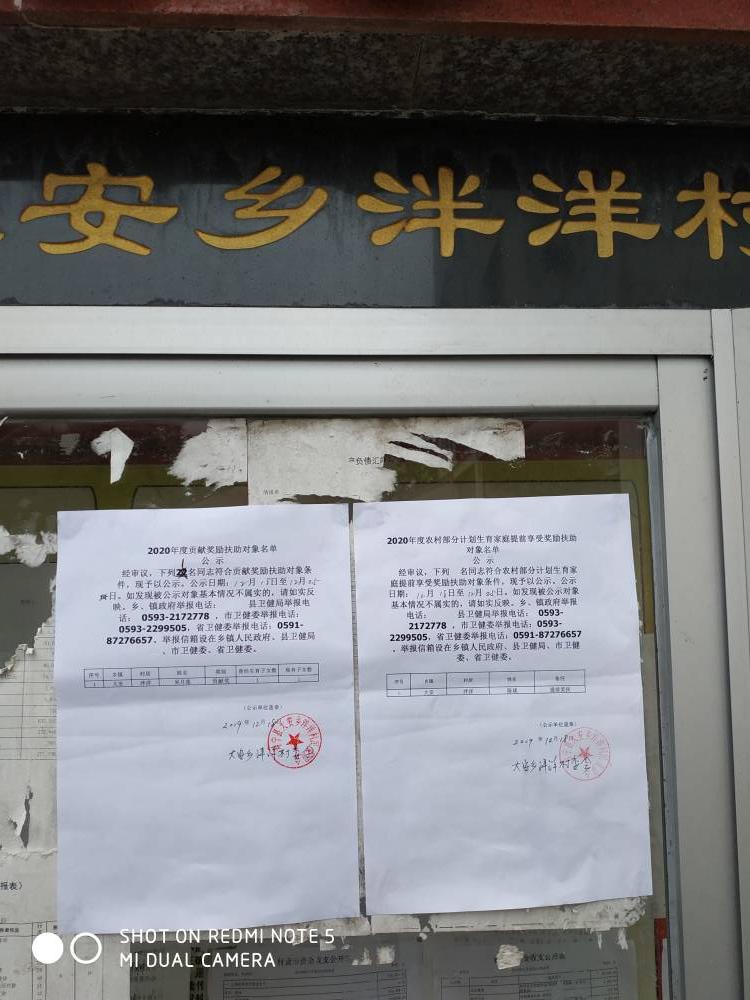 安乡泮洋村
产负债汇
2020年度贡献奖励扶助对象名单
公 示
经审议，下列 名同志符合贡献奖励扶助对象条
件，现予以公示。公示日期：12月18日至12月25
日。如发现被公示对象基本情况不属实的，请如实反
映。乡、镇政府举报电话： 县卫健局举报电
话： 0593-2172778 ，市卫健委举报电话：
0593-2299505，省卫健委举报电话：0591-
87276657，举报信箱设在乡镇人民政府、县卫健局
、市卫健委、省卫健委。
序号 乡镇 村居 姓名 类别 曾经生育子女数 现有子女数
1 大安 泮洋 贡献奖
（公示单位盖章）
2019年12月18日
大安乡泮洋村委会
2020年度农村部分计划生育家庭提前享受奖励扶助
对象名单
公 示
经审议，下列 名同志符合农村部分计划生育家
庭提前享受奖励扶助对象条件，现予以公示。公示
日期：12月18日至12月25日。如发现被公示对象
基本情况不属实的，请如实反映。乡、镇政府举报
电话： 县卫健局举报电话：0593-
2172778 ，市卫健委举报电话：0593-
2299505，省卫健委举报电话：0591-87276657
，举报信箱设在乡镇人民政府、县卫健局、市卫健
委、省卫健委。
序号 乡镇 村居 姓名 备注
1 大安 泮洋
（公示单位盖章）
2019年12月18日
大安乡泮洋村委会
报表）
SHOT ON REDMI NOTE 5
MI DUAL CAMERA